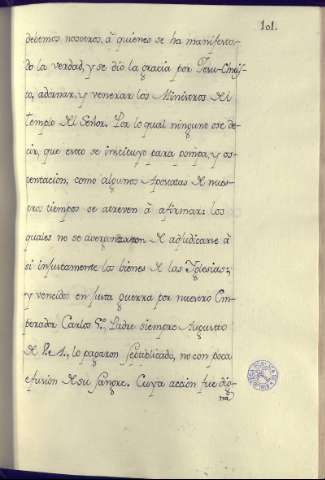 101.
debemos nosotros, à quienes se ha manifesta-
do la verdad, y se dio la gracia por Jesu-Chris-
to, adornar, y venerar los Ministros del
templo del Señor. Por lo qual ninguno ose de-
cir, que esto se instituyo para pompa, y os-
tentacion, como algunos Apostatas de nues-
tros tiempos se atreven à afirmar: los
quales no se avergonzaron de adjudicarse à
si injustamente los bienes de las Iglesias;
y vencidos en justa guerra por nuestro Em-
perador Carlos 5.º Padre siempre Augusto
de V. A., lo pagaron, no con poca
efusion de su sangre. Cuya accion fue dig-
na